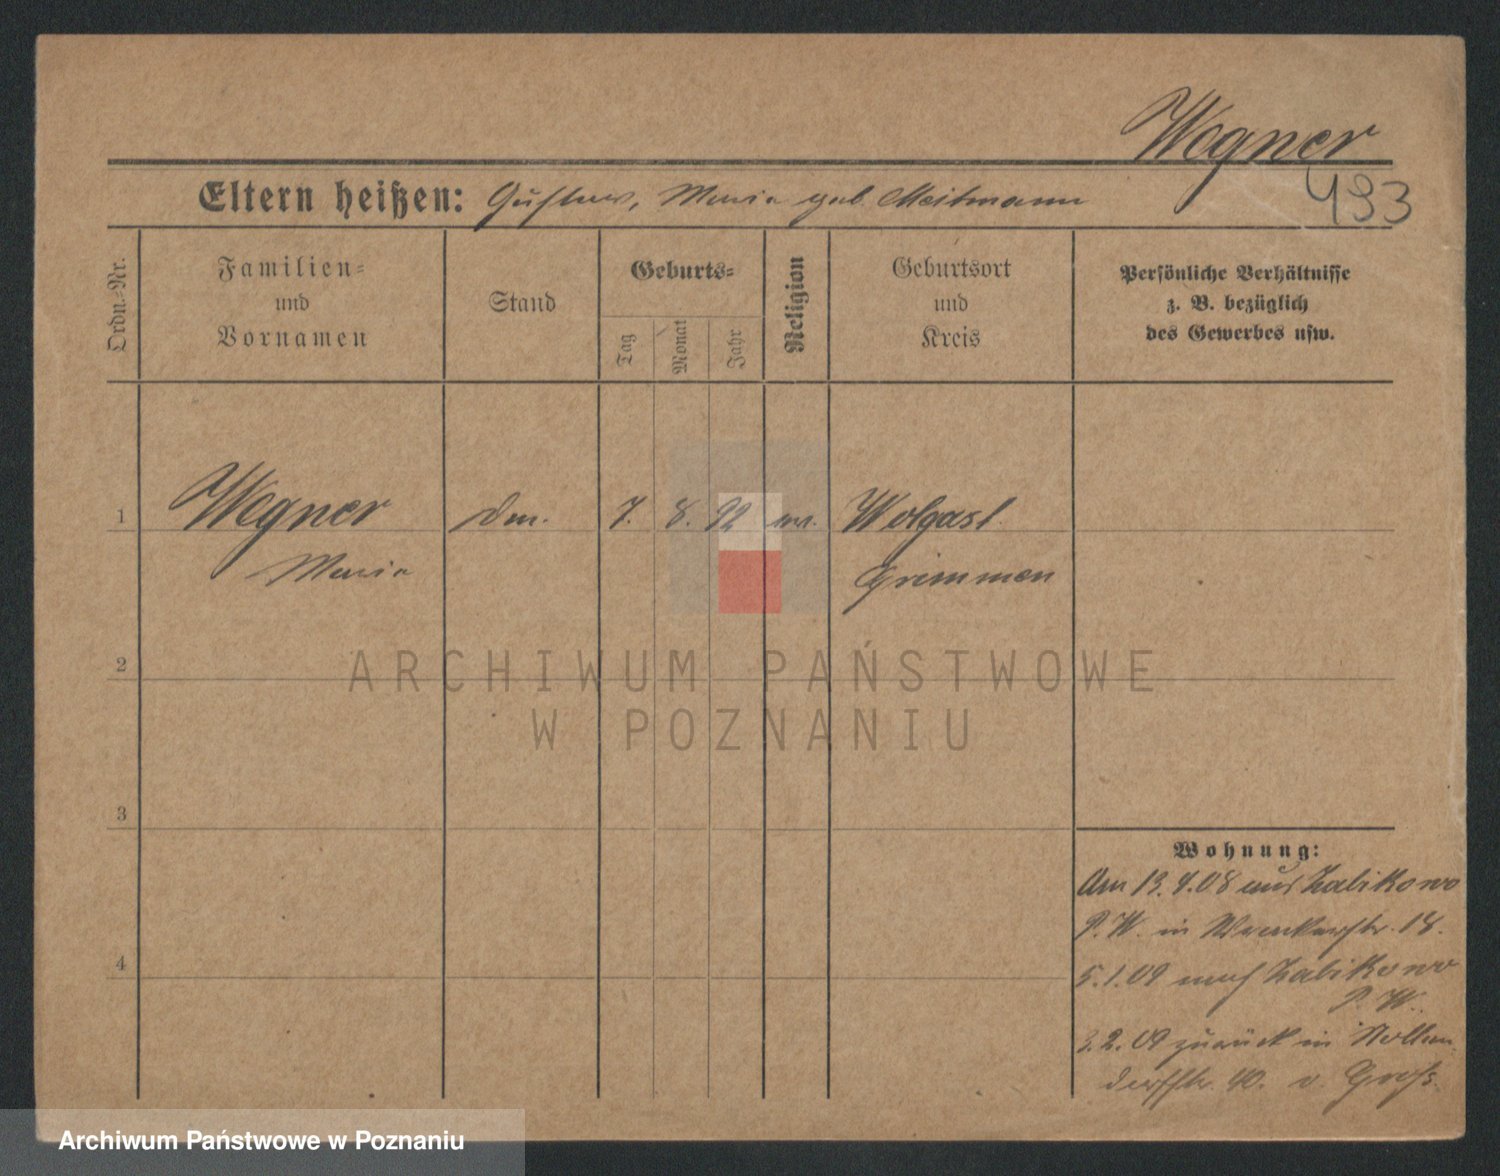 Wegner
493
Eltern heißen: Gustav, Maria geb. Meitmann
Ordn.-Nr.
Familien-
und
Vornamen
Stand
Geburts-
Tag
Monat
Jahr
Religion
Geburtsort
und
Kreis
Persönliche Verhältnisse
z. B. bezüglich
des Gewerbes usw.
1
Wegner
7. 8. 92
Wolgast
Maria
Grimmen
2
ARCHIWUM PAŃSTWOWE
W POZNANIU
3
4
Wohnung:
Am 13.7.08 aus Zabikowo
P.W. in 18.
5.1.09 nach Zabikowo
P.W.
3.2.09 zurück in Nollen
dorfstr. 40. v. Groß
Archiwum Państwowe w Poznaniu